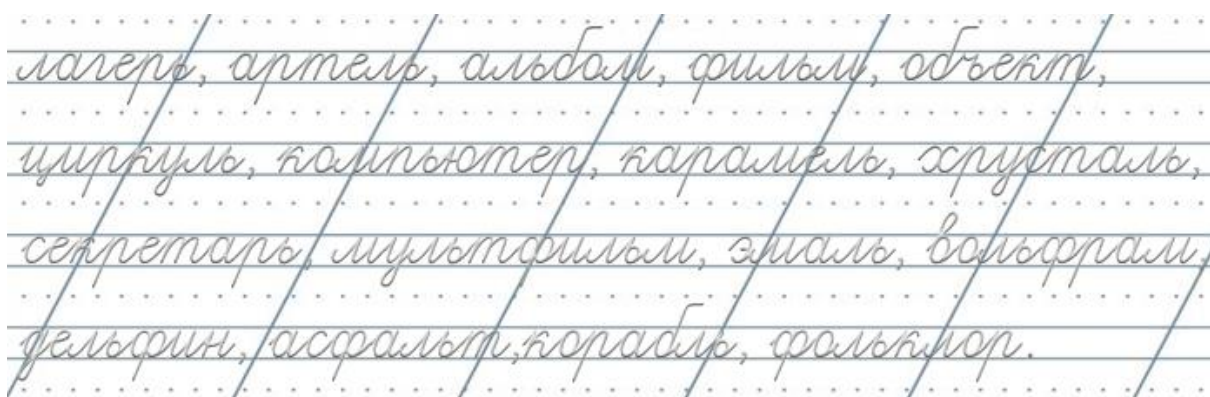 лагерь, артель, альбом, фильм, объект,
циркуль, компьютер, карамель, хрусталь,
секретарь, мультфильм, эмаль, вольфрам,
дельфин, асфальт,корабль, фольклор.